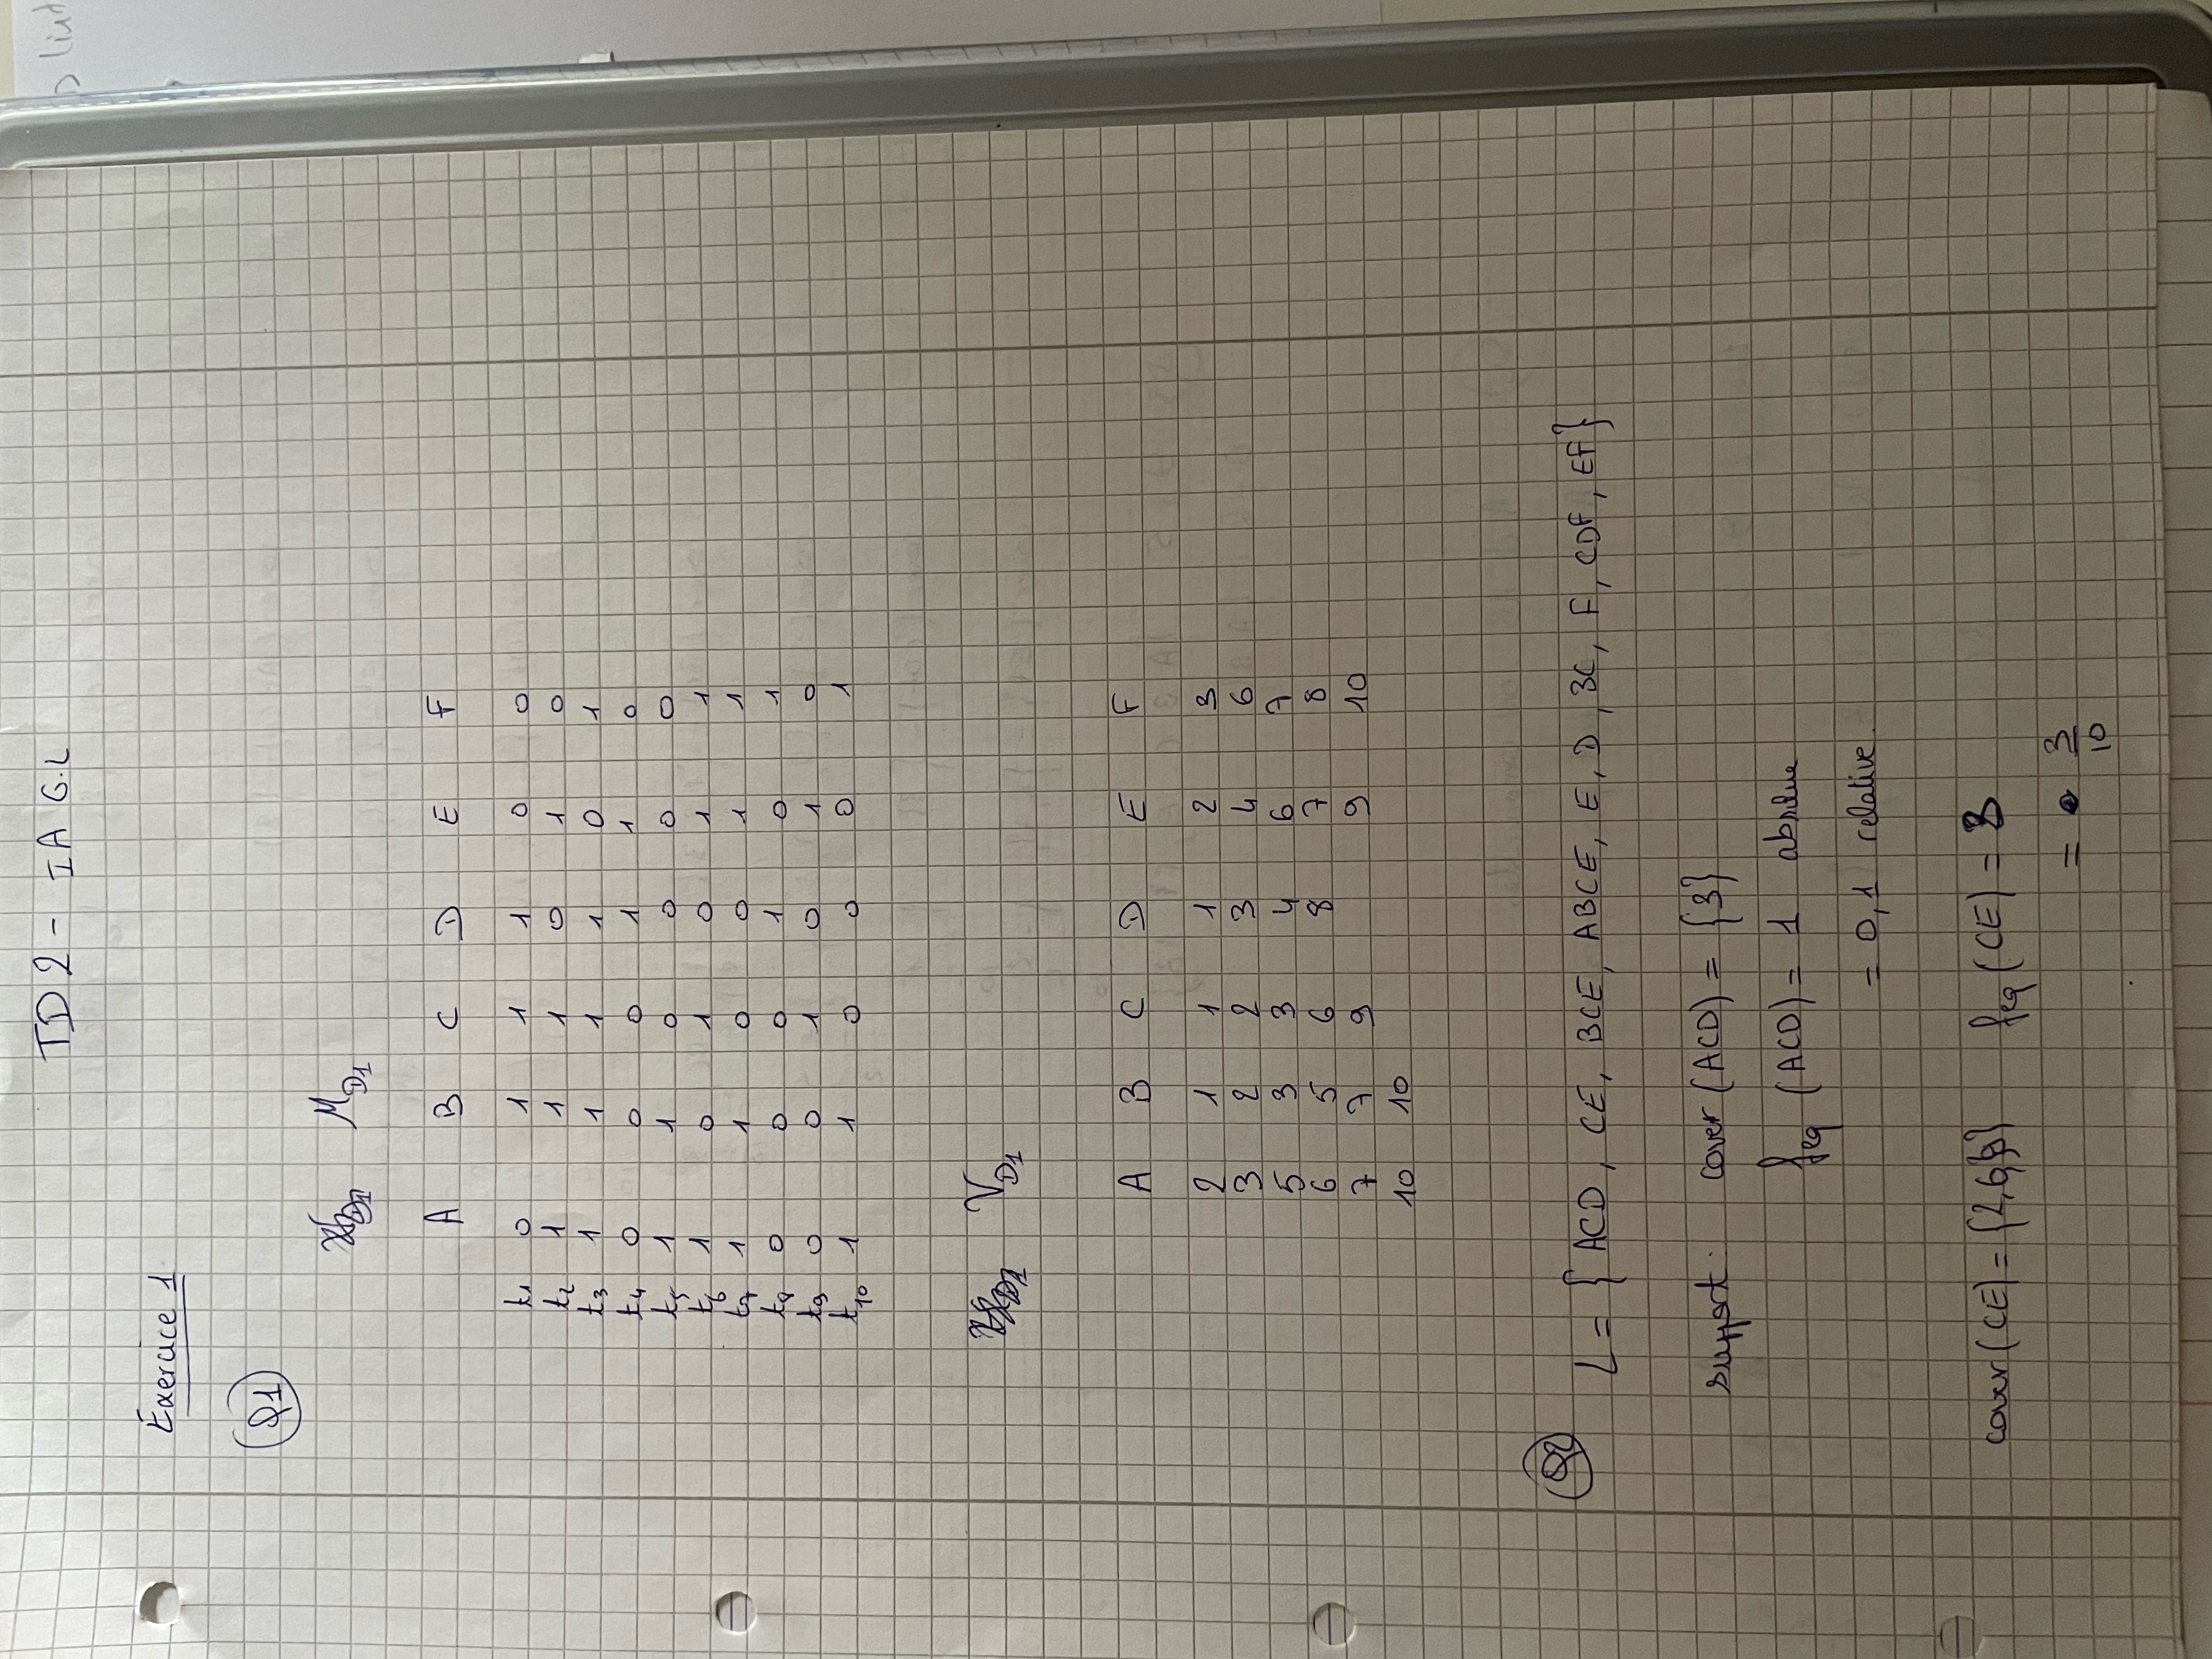 TD2 - IA G.L
Exercice 1
Q1
M D1
A B C D E F
t1 0 1 1 1 0 0
t2 1 1 1 0 1 0
t3 1 1 1 1 0 1
t4 0 0 0 1 1 0
t5 1 1 0 0 0 0
t6 1 0 1 0 1 1
t7 1 1 0 0 1 1
t8 0 0 0 1 0 1
t9 0 0 1 0 1 0
t10 1 1 0 0 0 1
V D1
A B C D E F
2 1 1 1 2 3
3 2 2 3 4 6
5 3 3 4 6 7
6 5 6 8 7 8
7 7 9 9 10
10 10
Q2 L = {ACD, CE, BCE, ABCE, E, D, BC, F, CDF, EF}
support. cover (ACD) = {3}
feq (ACD) = 1 absolue
= 0,1 relative.
cover (CE) = {2,6,9} feq (CE) = 3
= 3/10